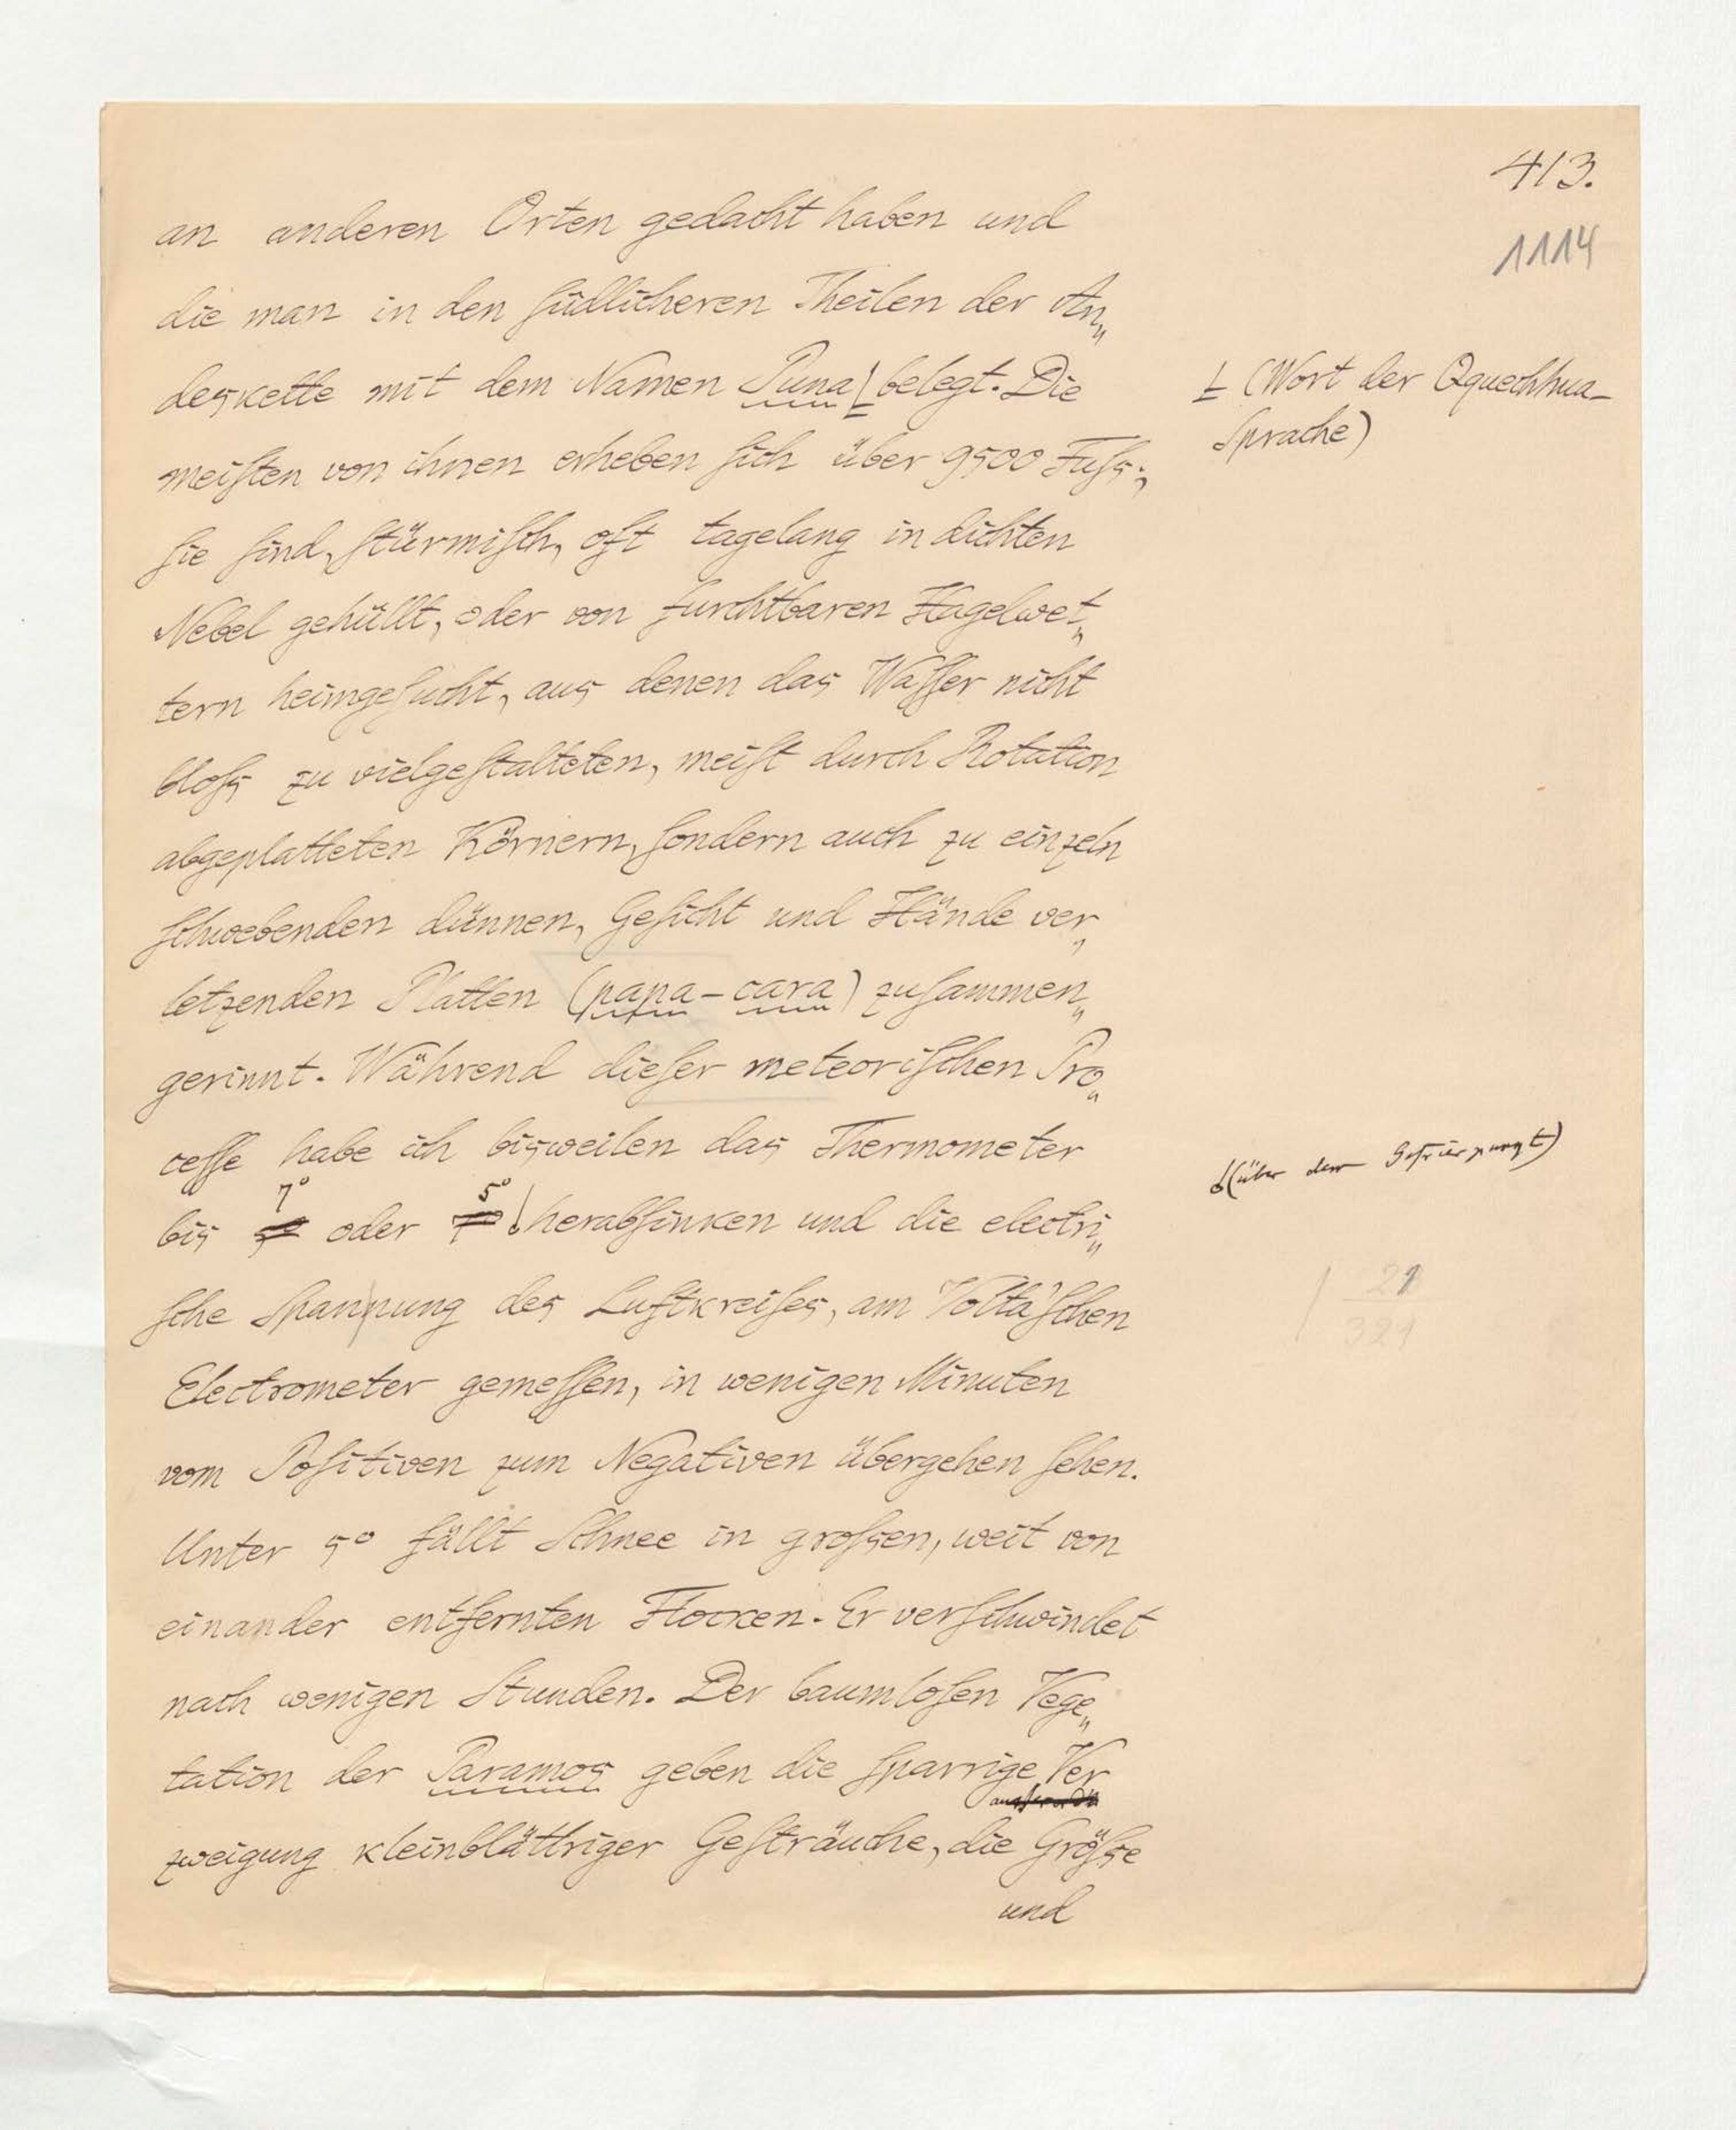 413.
1114
an anderen Orten gedacht haben und
die man in den südlicheren Theilen der An„
deskette mit dem Namen Puna belegt. Die
⊥ (Wort der Qquechhua-
Sprache)
meisten von ihnen erheben sich über 9500 Fuſs;
sie sind, stürmisch, oft tagelang in dichten
Nebel gehüllt, oder von furchtbaren Hagelwet„
tern heimgesucht, aus denen das Wasser nicht
bloſs zu vielgestalteten, meist durch Rotation
abgeplatteten Körnern, sondern auch zu einzeln
schwebenden dünnen, Gesicht und Hände ver„
letzenden Platten (papa-cara) zusammen„
gerinnt. Während dieser meteorischen Pro„
cesse habe ich bisweilen das Thermometer
(über dem Gefrierpungt)
7° 5°
bis oder herabsinken und die electri„
sche Spannung des Luftkreises, am Volta'schen
21
321
Electrometer gemessen, in wenigen Minuten
vom Positiven zum Negativen übergehen sehen.
Unter 5° fällt Schnee in groſsen, weit von
einander entfernten Flocken. Er verschwindet
nach wenigen Stunden. Der baumlosen Vege„
tation der Paramos geben die sparrige Ver
zweigung kleinblättriger Gesträuche, die Gröſse
und